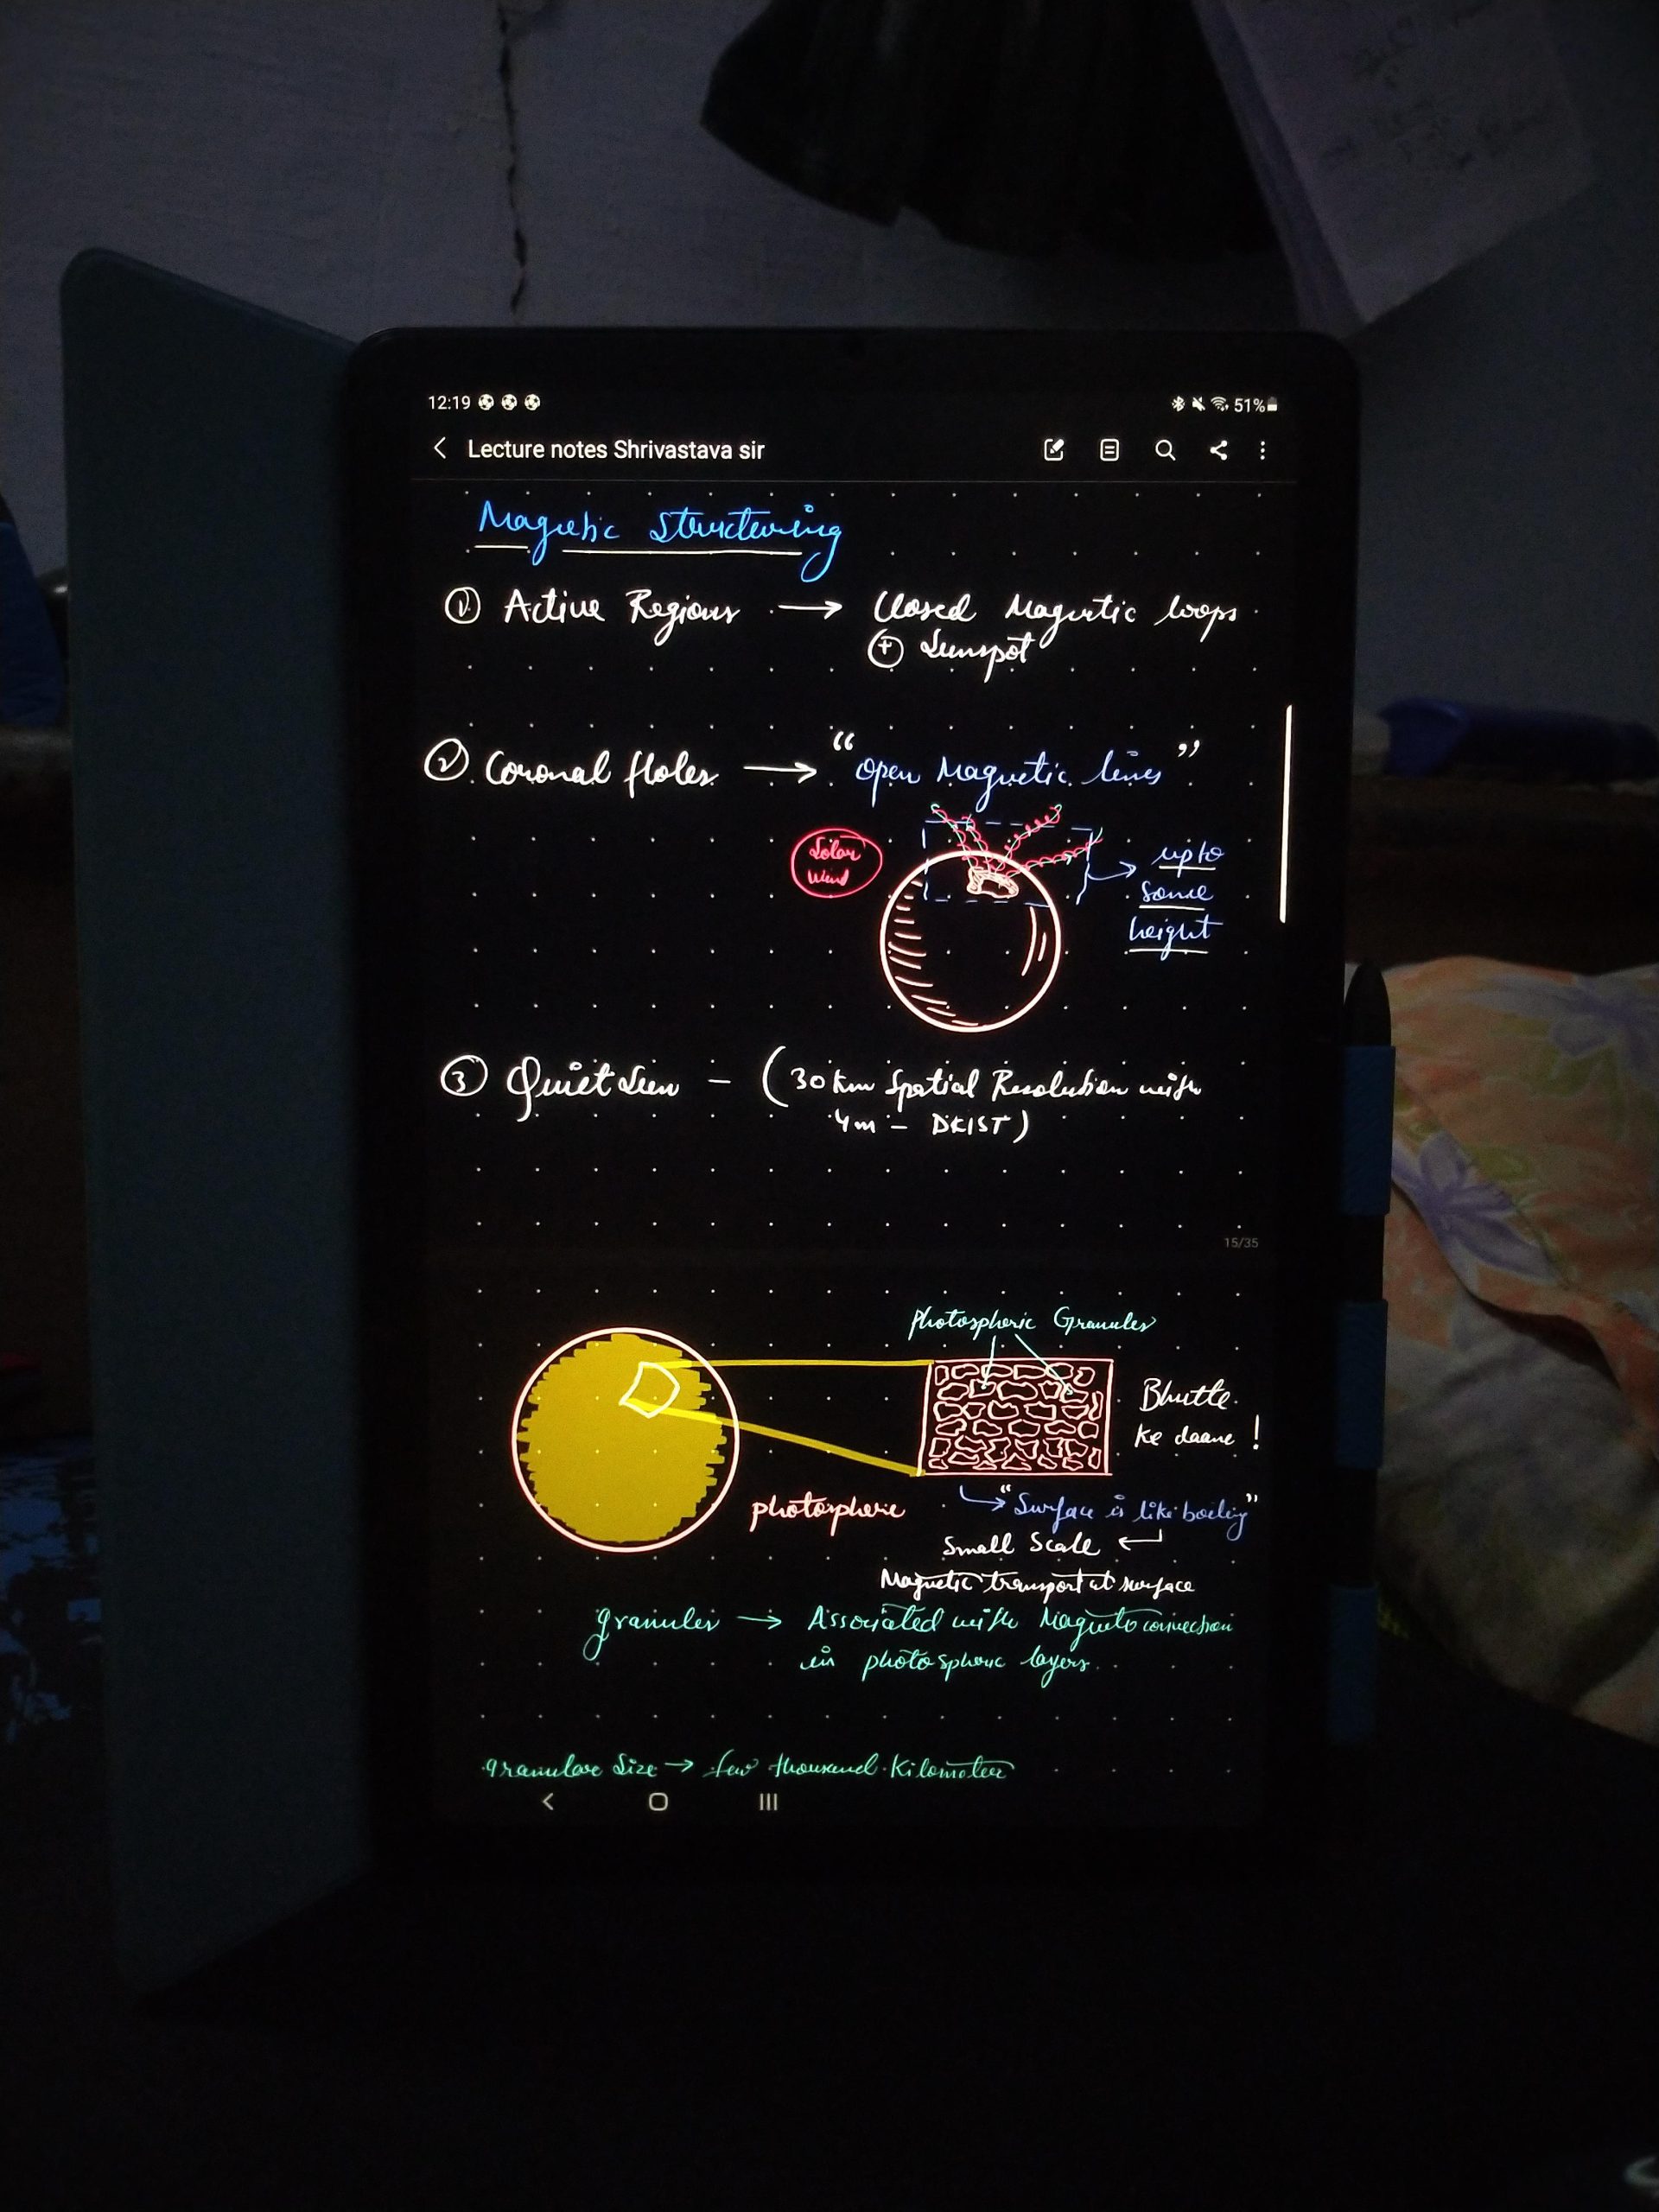 12:19
51%
Lecture notes Shrivastava sir
Magnetic Structuring
① Active Regions → Closed Magnetic loops
⊕ Sunspot
② Coronal Holes → "open Magnetic lines"
Solar
Wind
upto
some
height
③ Quiet Sun – (30 km Spatial Resolution with
4m – DKIST)
15/35
photospheric Granules
Bhutte
ke daane !
photosphere
→ "Surface is like boiling"
Small Scale ←
Magnetic transport at surface
granules → Associated with Magnetoconvection
in photospheric layers.
granular size → few thousand kilometer